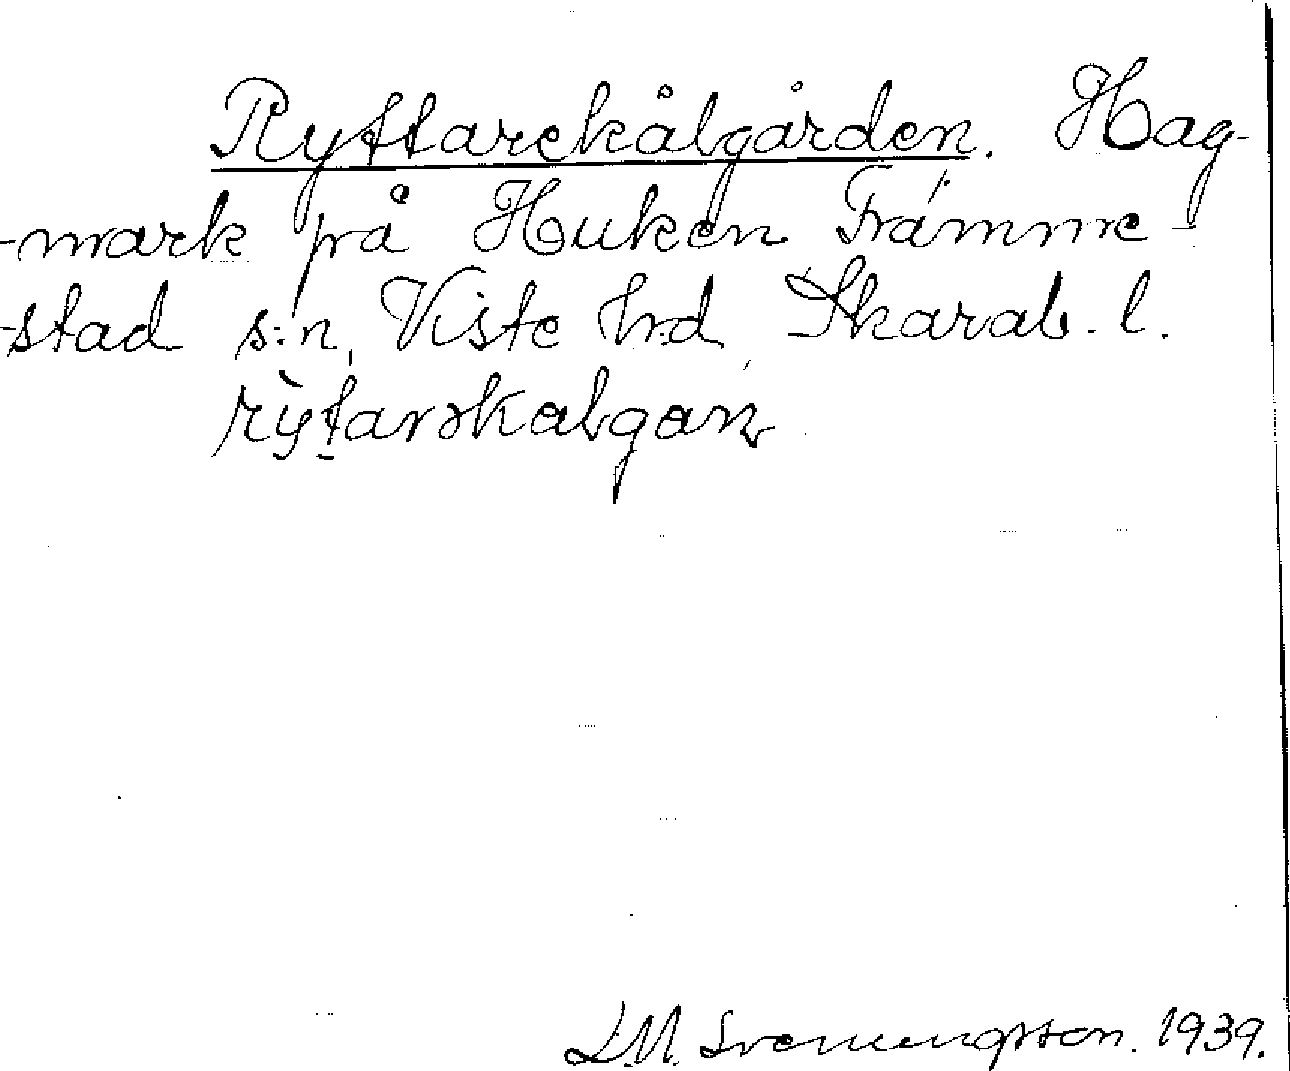 Ryttarekålgården. Hag-
-mark på Huken Främme-
-stad s:n, Viste hrd, Skarab. l.
L.M. Svenungsson. 1939.